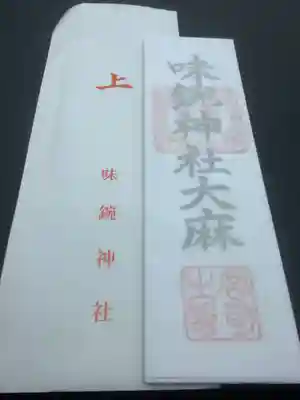 味鋺神社大麻
上
味鋺神社